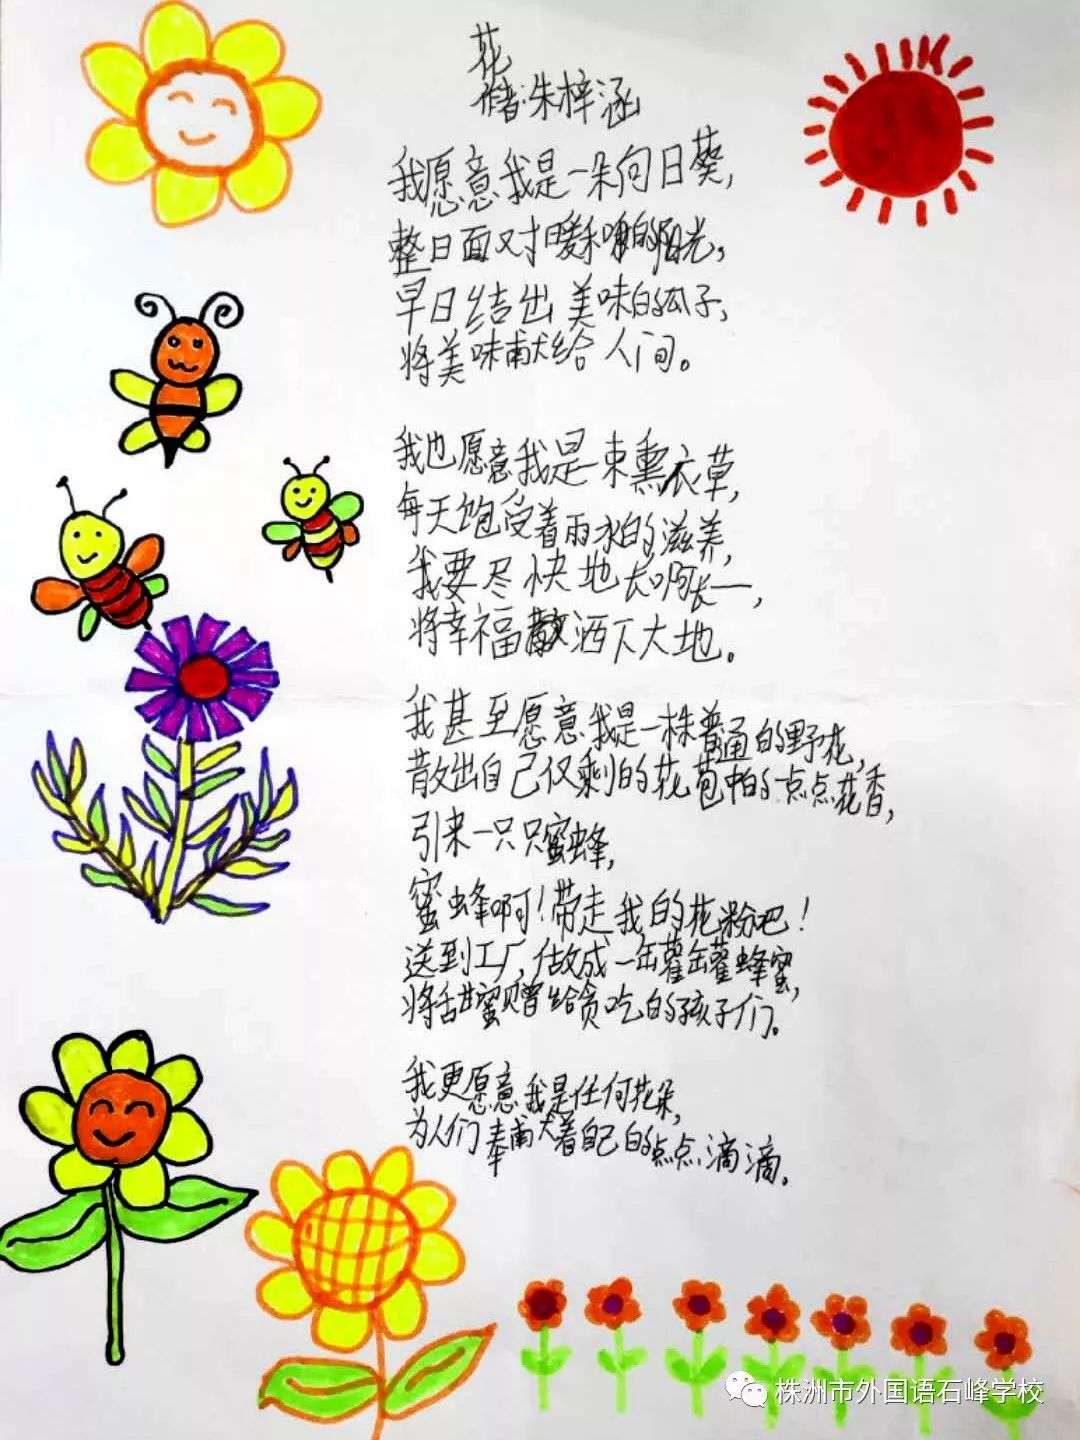 花
作者:朱梓涵
我愿意我是一朵向日葵,
整日面对暖和的阳光,
早日结出美味的瓜子,
将美味献给人间。
我也愿意我是一束熏衣草,
每天饱受着雨水的滋养,
我要尽快地长啊长——,
将幸福散洒下大地。
我甚至愿意我是一株普通的野花,
散出自己仅剩的花苞中的一点点花香,
引来一只只蜜蜂,
蜜蜂啊!带走我的花粉吧!
送到工厂,做成一罐罐蜂蜜,
将甜蜜赠给贪吃的孩子们。
我更愿意我是任何花朵,
为人们奉献着自己的点点滴滴。
株洲市外国语石峰学校